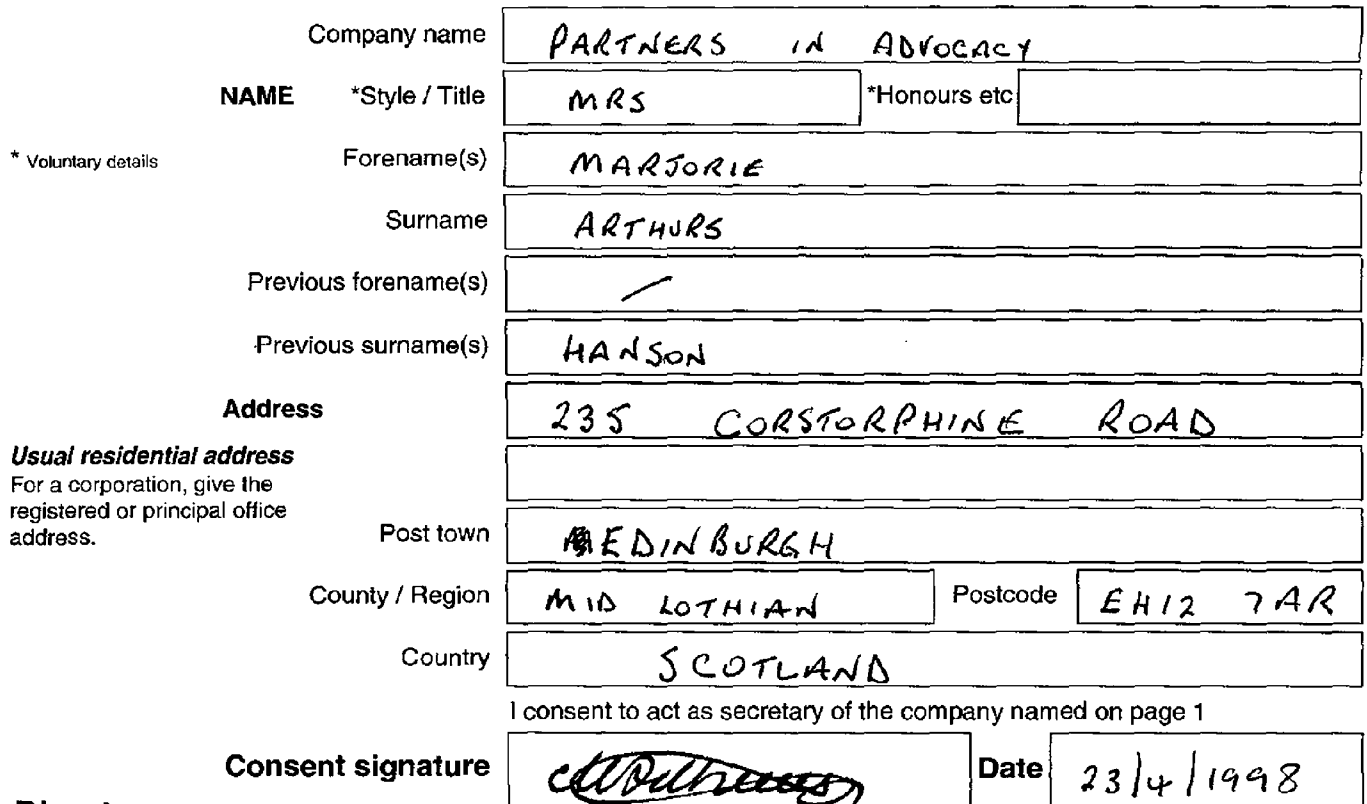 Company name PARTNERS IN ADVOCACY
NAME *Style / Title MRS *Honours etc
* Voluntary details Forename(s) MARJORIE
Surname ARTHURS
Previous forename(s) /
Previous surname(s) HANSON
Address 235 CORSTORPHINE ROAD
Usual residential address
For a corporation, give the
registered or principal office
address.
Post town EDINBURGH
County / Region MID LOTHIAN Postcode EH12 7AR
Country SCOTLAND
I consent to act as secretary of the company named on page 1
Consent signature Date 23/4/1998